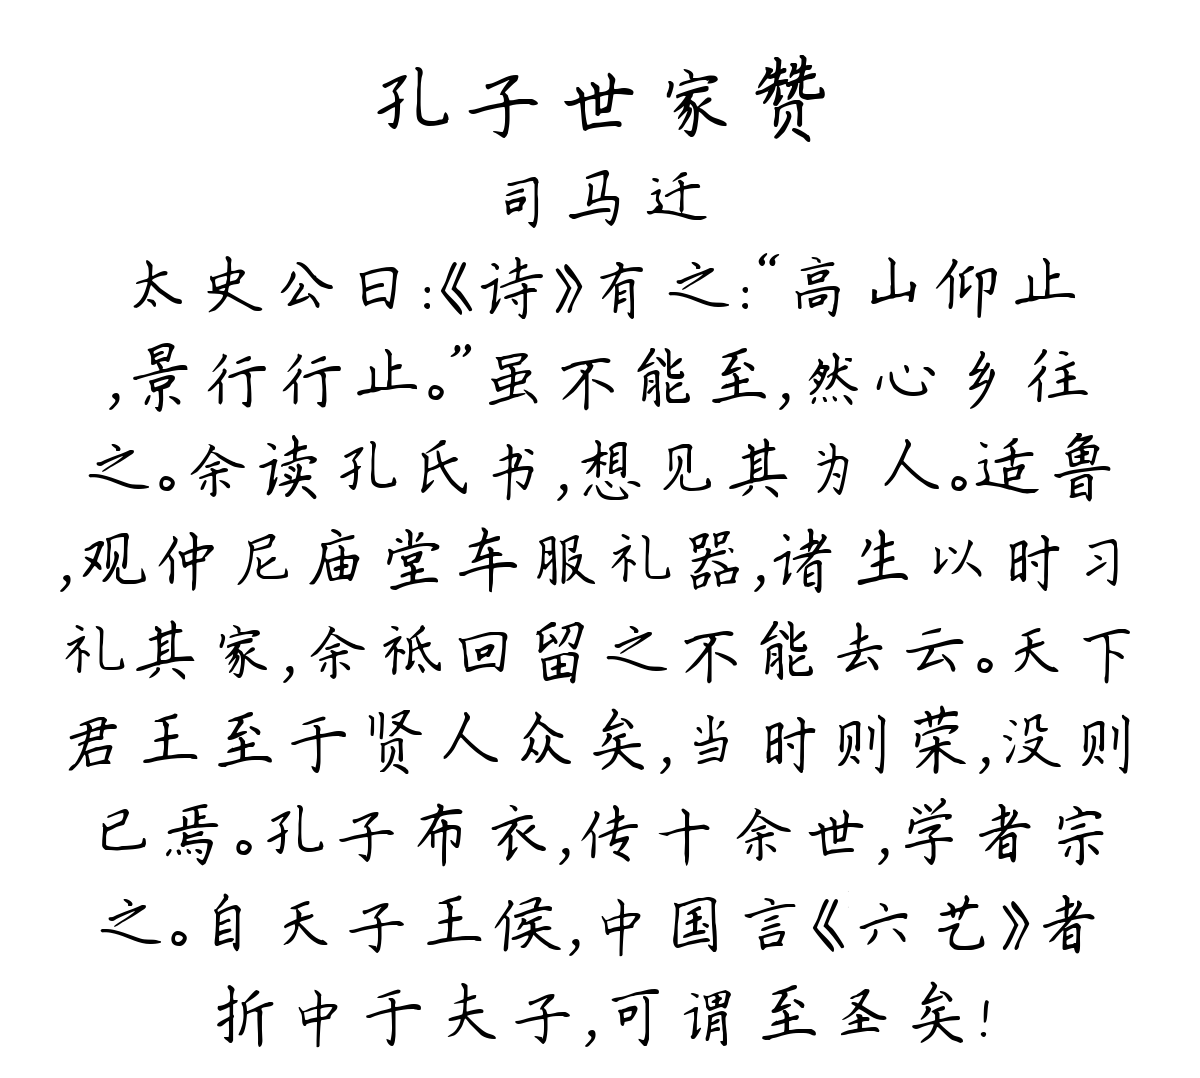 孔子世家赞
司马迁
太史公曰:《诗》有之:“高山仰止
,景行行止。”虽不能至,然心乡往
之。余读孔氏书,想见其为人。适鲁
,观仲尼庙堂车服礼器,诸生以时习
礼其家,余祗回留之不能去云。天下
君王至于贤人众矣,当时则荣,没则
已焉。孔子布衣,传十余世,学者宗
之。自天子王侯,中国言《六艺》者
折中于夫子,可谓至圣矣!